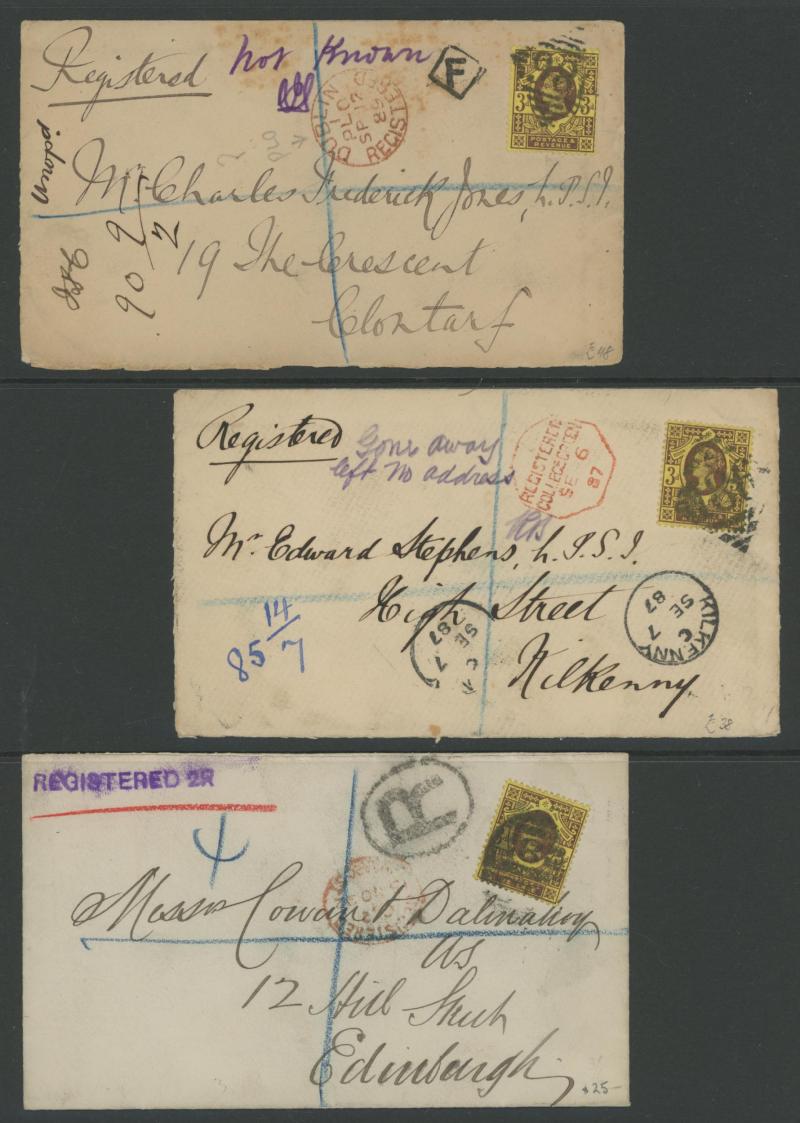 Registered
Not Known
F
DUBLIN
PLO
SP 12
85
REGISTERED
3D
3D
POSTAGE &
REVENUE
PLO
2
90
2
Mr. Charles Frederick Jones, L.P.S.I.
19 The Crescent
Clontarf
£48
Registered
Gone away
left no address
REGISTERED
COLLEGE GREEN
SE 6
87
Mr. Edward Stephens, L.P.S.I.
High Street
Kilkenny
14
85 7
C
SE 7
87
KILKENNY
C
SE 7
87
£38
REGISTERED 2R
R
4
Messrs Cowan & Dalmahoy
WS
12 Hill Street
Edinburgh
$25-